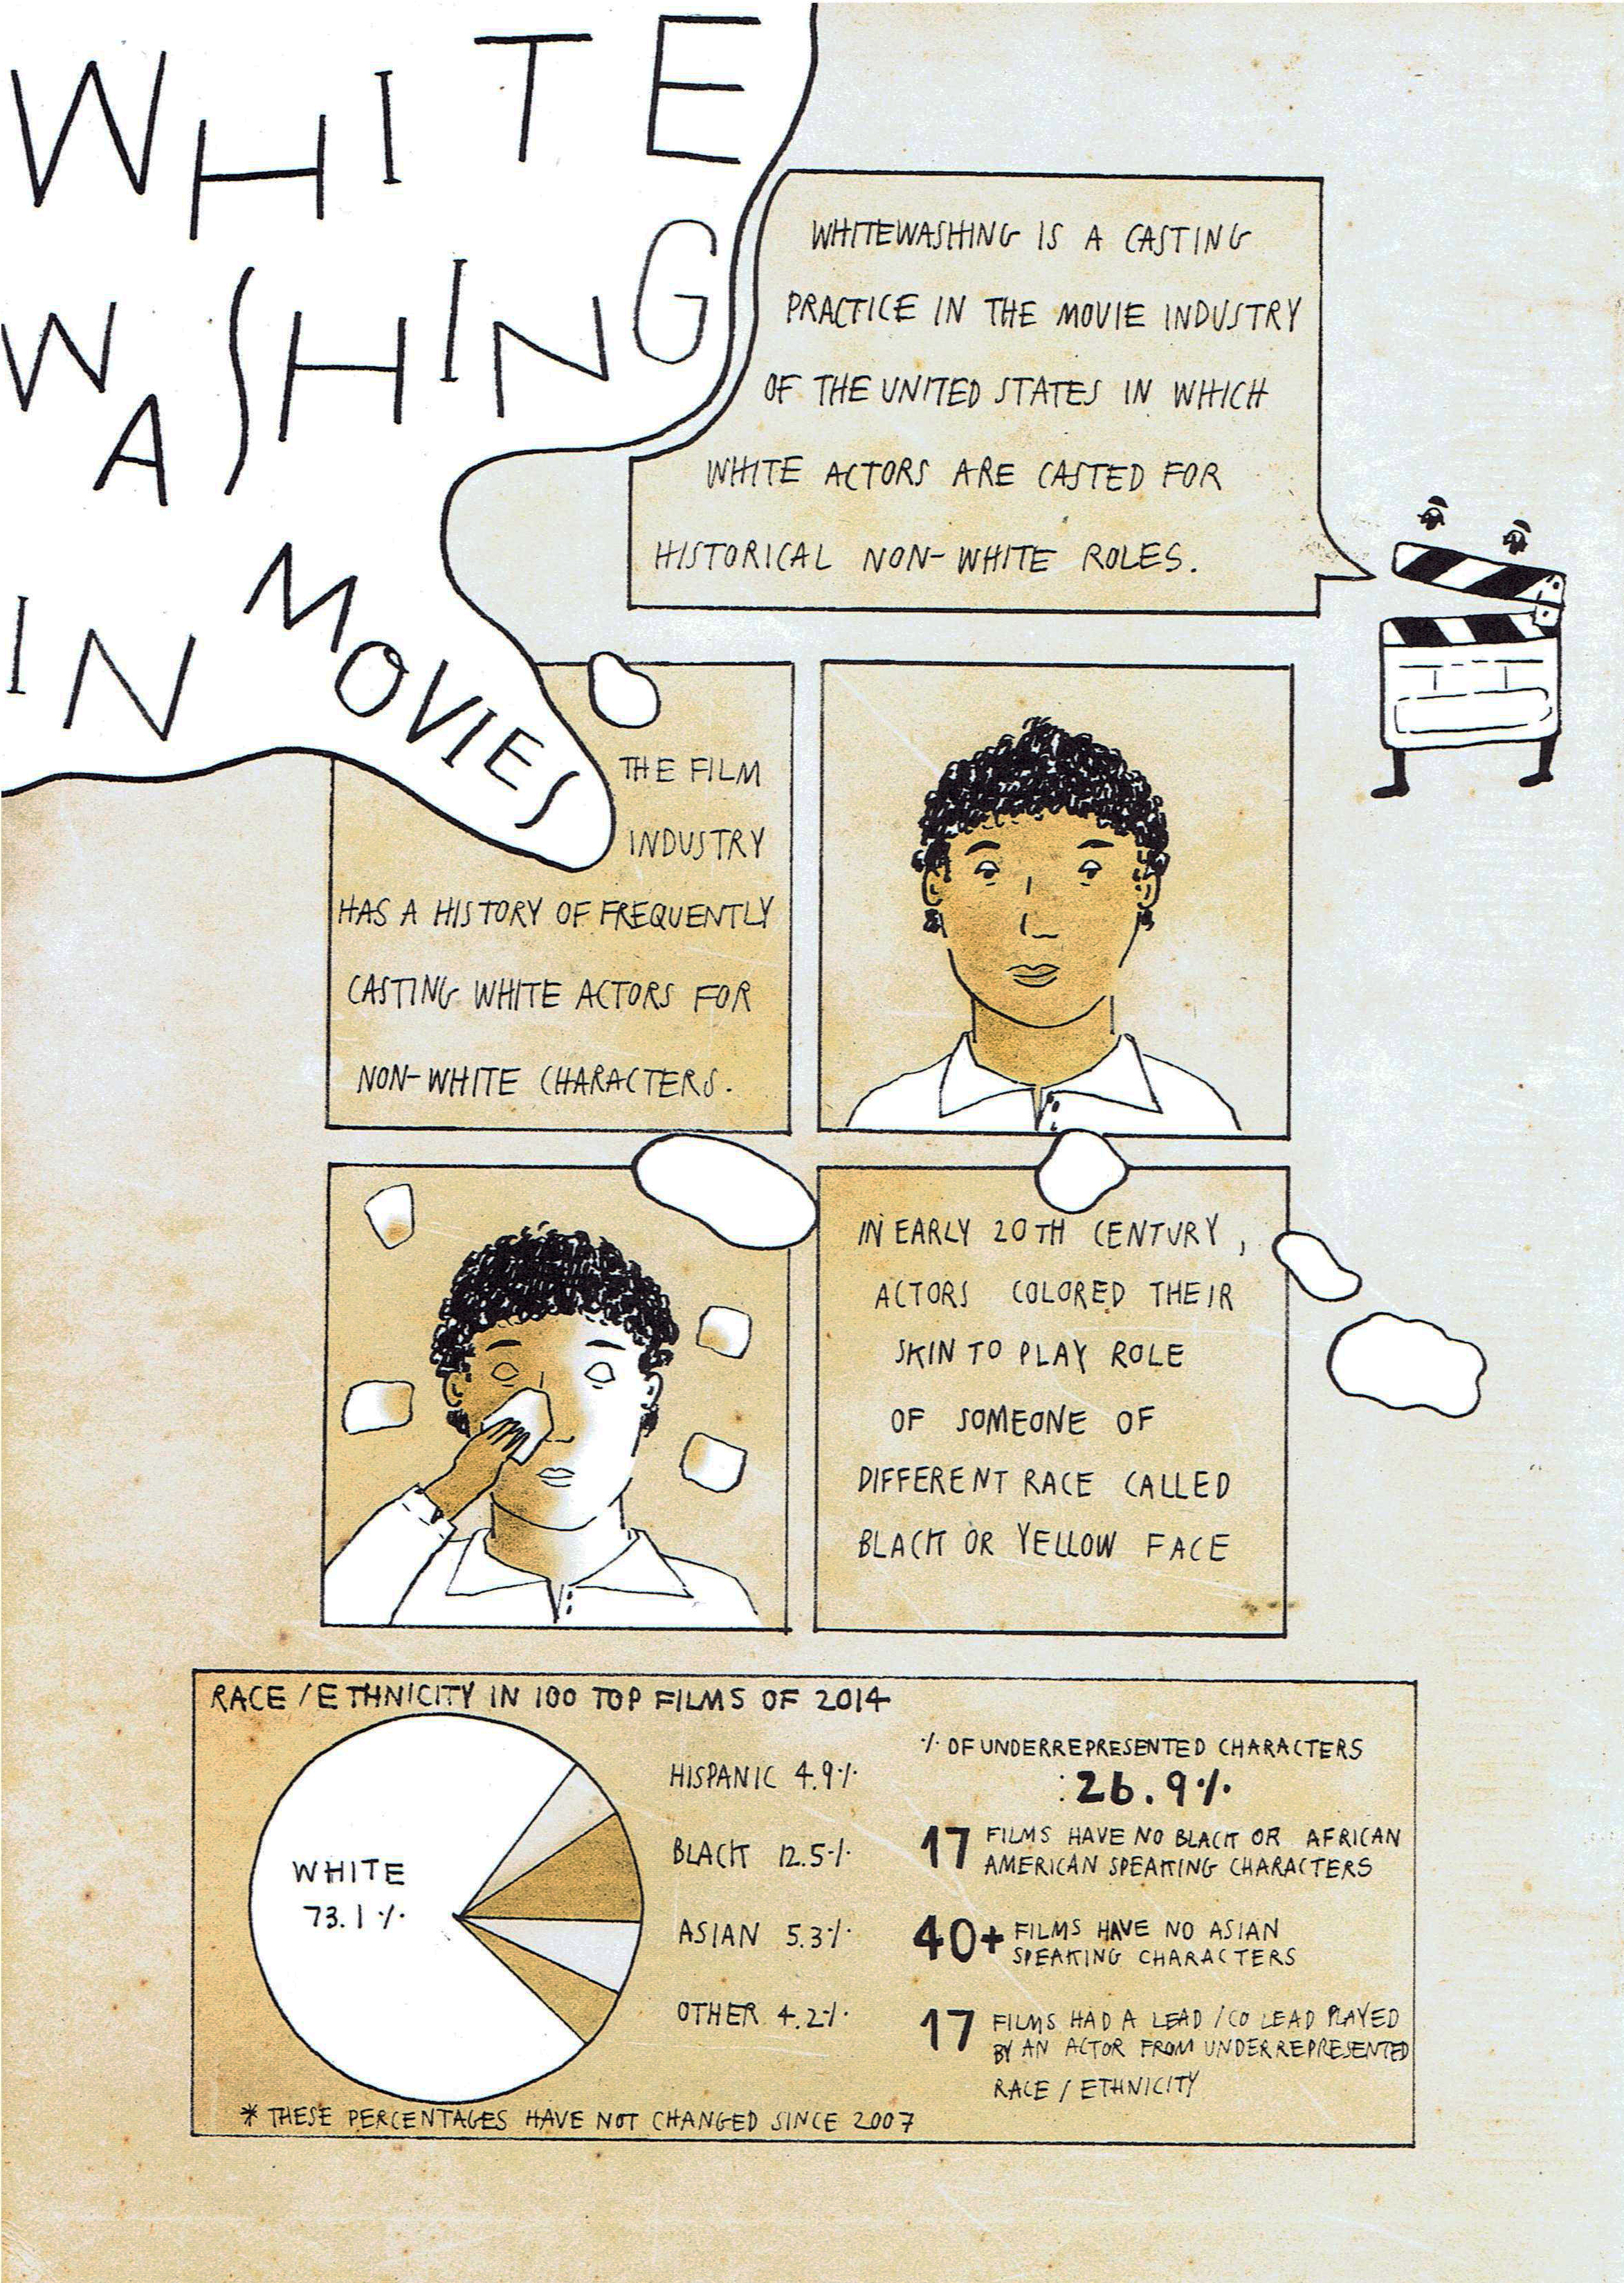 WHITE
WASHING
IN MOVIES
WHITEWASHING IS A CASTING
PRACTICE IN THE MOVIE INDUSTRY
OF THE UNITED STATES IN WHICH
WHITE ACTORS ARE CASTED FOR
HISTORICAL NON-WHITE ROLES.
THE FILM
INDUSTRY
HAS A HISTORY OF FREQUENTLY
CASTING WHITE ACTORS FOR
NON-WHITE CHARACTERS.
IN EARLY 20TH CENTURY,
ACTORS COLORED THEIR
SKIN TO PLAY ROLE
OF SOMEONE OF
DIFFERENT RACE CALLED
BLACK OR YELLOW FACE
RACE / ETHNICITY IN 100 TOP FILMS OF 2014
WHITE
73.1%
HISPANIC 4.9%
BLACK 12.5%
ASIAN 5.3%
OTHER 4.2%
% OF UNDERREPRESENTED CHARACTERS
:26.9%
17 FILMS HAVE NO BLACK OR AFRICAN
AMERICAN SPEAKING CHARACTERS
40+ FILMS HAVE NO ASIAN
SPEAKING CHARACTERS
17 FILMS HAD A LEAD / CO LEAD PLAYED
BY AN ACTOR FROM UNDERREPRESENTED
RACE / ETHNICITY
* THESE PERCENTAGES HAVE NOT CHANGED SINCE 2007